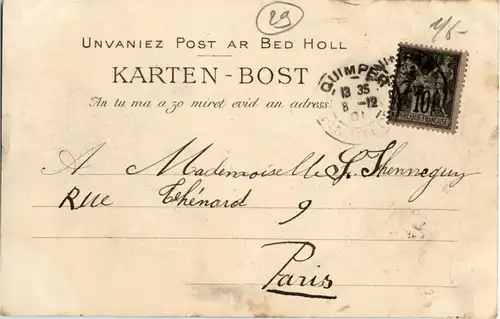 29
1/8-
UNVANIEZ POST AR BED HOLL
KARTEN-BOST
An tu ma a zo miret evid an adress
QUIMPER
13 35
8 -12
01
10
A Mademoiselle S. Thenneguy
RUE Thénard 9
Paris